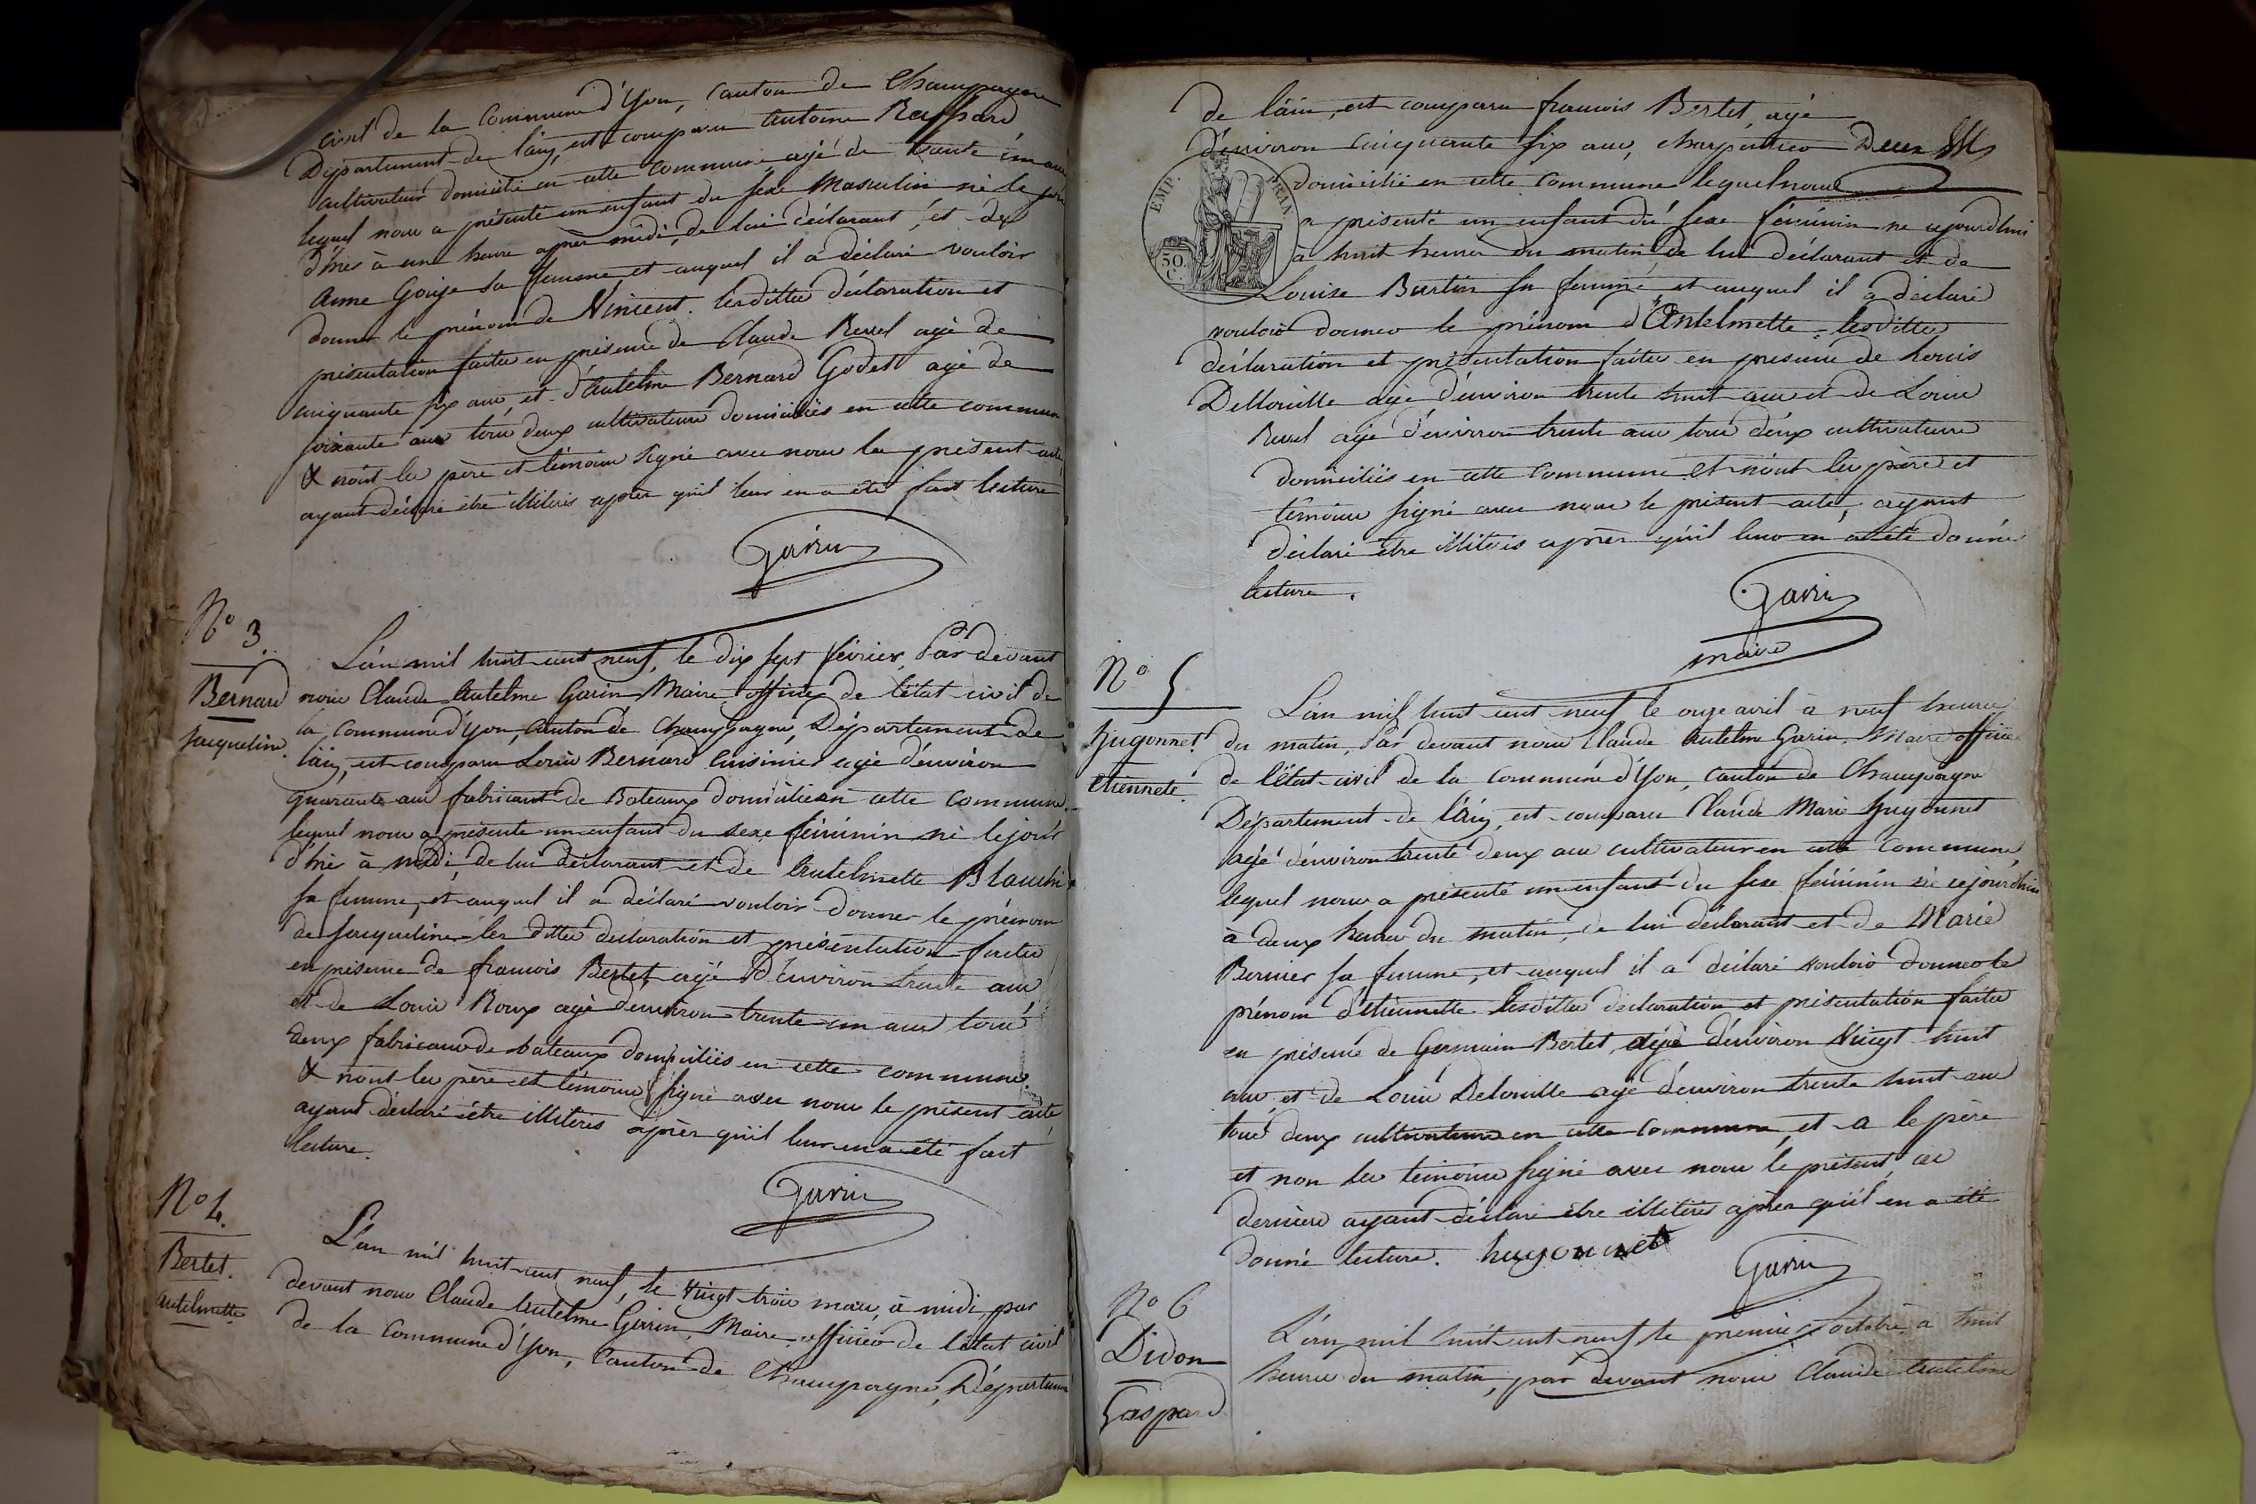 civil de la Commune d'Yon, Canton de Champagne
Département de l'ain, est comparu Antoine Raffard
cultivateur domicilié en cette commune, agé de trente
lequel nous a présenté un enfant du sexe Masculin né le jour
d'hier à une heure après midi, de lui déclarant, et de
Anne Gouje sa femme, et auquel il a déclaré vouloir
donner le prénom de Vincent. lesdittes déclaration et
présentation faites en présence de Claude Revel agé de
cinquante six ans, et d'Antelme Bernard Godet agé de
soixante ans tous deux cultivateurs domiciliés en cette commune
& n'ont les père et témoins signé avec nous le présent acte,
ayant déclaré être illiterés après qu'il leur en a été fait lecture
Garin
N° 3.
Bernard
Jacqueline.
L'an mil huit cent neuf, le dix sept février, Par devant
nous Claude Antelme Garin Maire officier de l'état civil de
la commune d'Yon, Canton de Champagne, Département de
l'ain, est comparu Louis Bernard Cuisinier agé d'environ
quarante ans fabricant de Bateaux domicilié en cette commune
lequel nous a présenté un enfant du sexe féminin né le jour
d'hier à midi, de lui déclarant et de Antelmette Blanchin
sa femme, et auquel il a déclaré vouloir donner le prénom
de Jacqueline les dittes déclaration et présentation faites
en présence de francois Bertet agé d'environ trente ans
et de Louis Roux agé d'environ trente un ans tous
deux fabricans de bateaux domiciliés en cette commune.
& n'ont les père et témoins signé avec nous le présent acte
ayant déclaré être illiterés après qu'il leur en a été fait
lecture.
Garin
N° 4.
Bertet.
Antelmette
L'an mil huit cent neuf, le vingt trois mars, à midi, par
devant nous Claude Antelme Garin, Maire officier de l'état civil
de la Commune d'Yon, Canton de Champagne, Département
de l'ain, est comparu francois Bertet, agé
d'environ cinquante six ans, charpentier
domicilié en cette commune lequel nous
EMP. FRAN.
50 C.
a présenté un enfant du sexe féminin né ajourdhui
à huit heures du matin, de lui déclarant et de
Louise Burtin sa femme, et auquel il a déclaré
vouloir donner le prénom d'Antelmette, lesdittes
déclaration et présentation faites en présence de Louis
Dellouille agé d'environ trente huit ans et de Louis
Revel agé d'environ trente ans tous deux cultivateurs
domiciliés en cette Commune et n'ont les père et
témoins signé avec nous le présent acte, ayant
déclaré être illiterés après qu'il leur en a été donné
lecture.
Garin
maire
N° 5
hugonnet.
etiennete.
L'an mil huit cent neuf le onze avril à neuf heures
du matin, Par devant nous Claude Antelme Garin, Maire officier
de l'état civil de la Commune d'Yon, Canton de Champagne
Département de l'ain, est comparu Claude Marie hugonnet
agé d'environ trente deux ans cultivateur en cette commune
lequel nous a présenté un enfant du sexe féminin né cejourd'hui
à deux heures du matin, de lui déclarant et de Marie
Bernier sa femme, et auquel il a déclaré vouloir donner le
prénom d'étiennette lesdittes déclaration et présentation faites
en présence de Germain Bertet, agé d'environ vingt huit
ans et de Louis Delouille agé d'environ trente huit ans
tous deux cultivateurs en cette Commune, et a le père
et non les témoins signé avec nous le présent, ces
derniers ayant déclaré être illiterés après qu'il en a été
donné lecture. hugonnet
Garin
N° 6
Didon
Gaspard
L'an mil huit cent neuf le premier octobre, à huit
heures du matin, par devant nous Claude Antelme